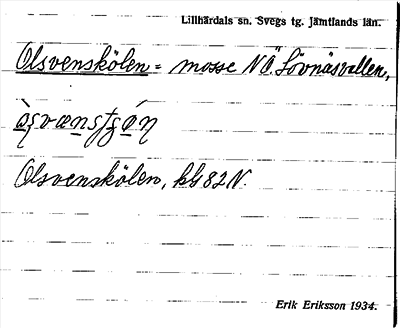 Lillhärdals sn. Svegs tg. Jämtlands län.
Olsvenskölen = mosse NÖ. Lövnäsvallen,
Olsvenskölen, kbl 82 N.
Erik Eriksson 1934.